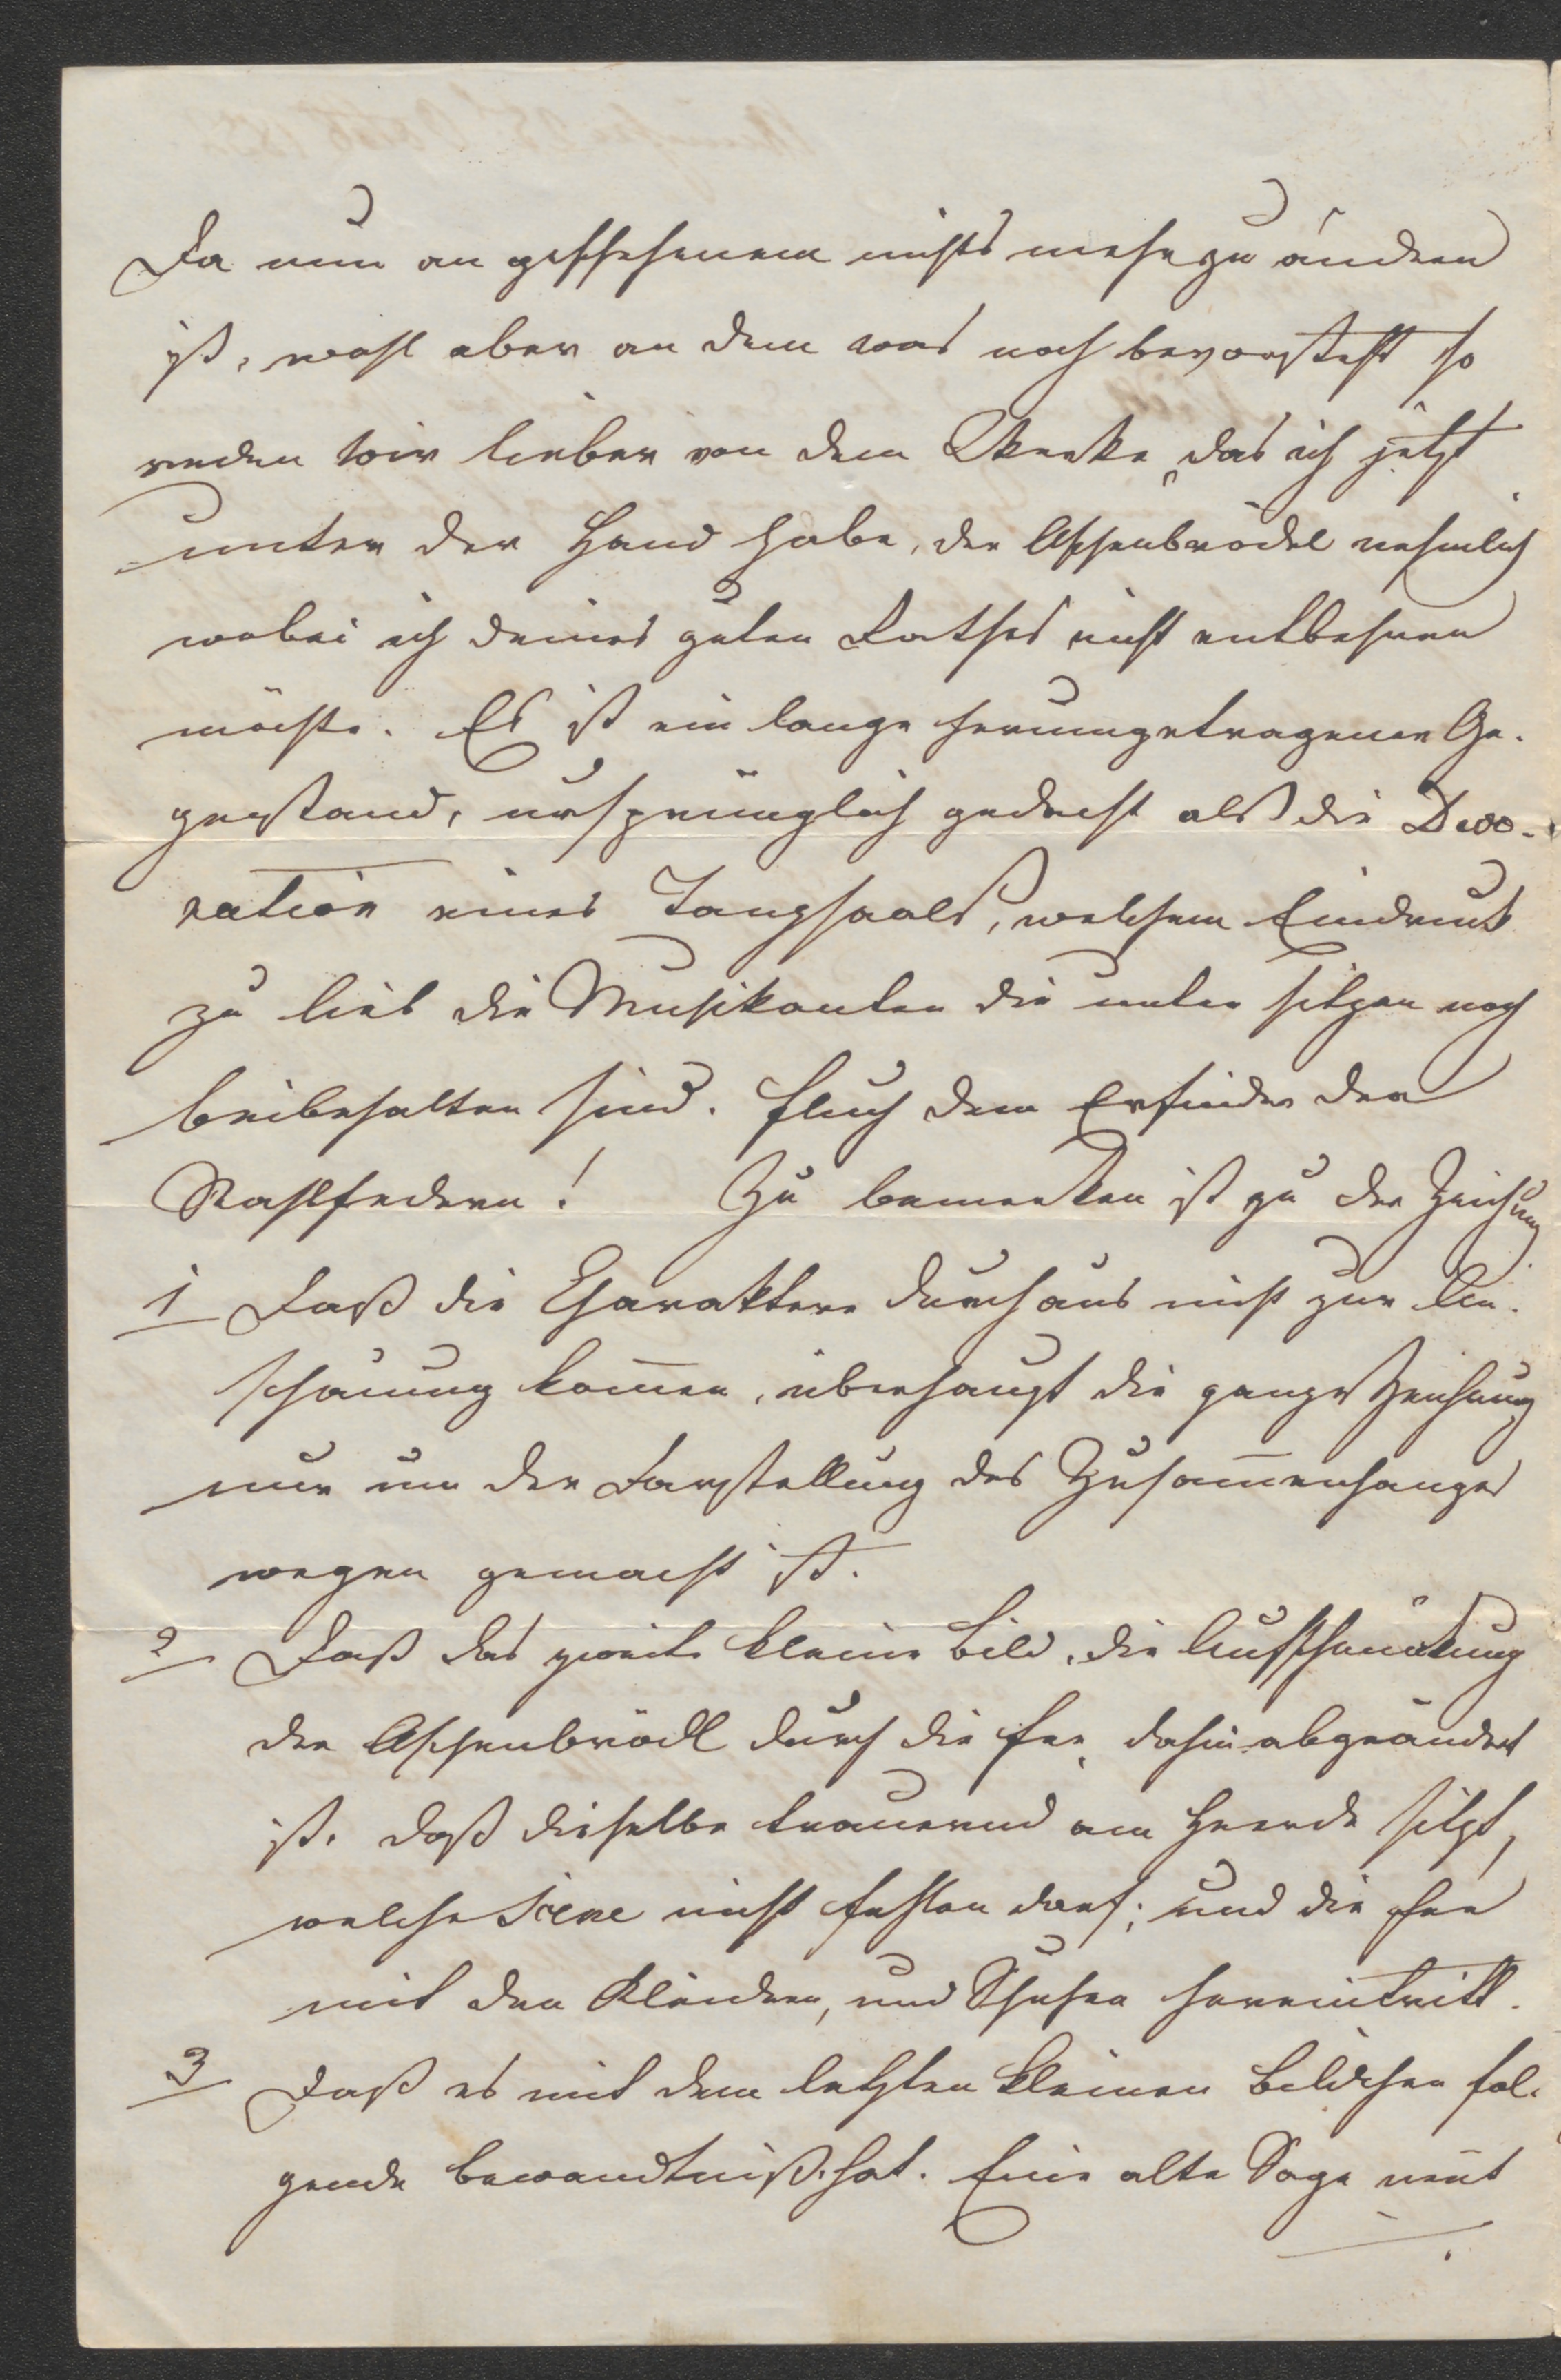 Da nun an geschehenem nichts mehr zu ändern
ist, wohl aber an dem was noch bevorsteht so
reden wir lieber von dem Werke, das ich jetzt
unter der Hand habe, der Aschenbrödel nehmlich
wobei ich deines guten Rathes nicht entbehren
möchte. Es ist ein lange herumgetragener Ge-
genstand, ursprünglich gedacht als die Deco-
ration eines Tanzsaals, welchem Eindruck
zu lieb die Musikanten die unten sitzen noch
beibehalten sind. Fluch dem Erfinder der
Stahlfedern! Zu bemerken ist zu der Zeichnung
1 Daß die Charaktere durchaus nicht zur An-
schauung kom̅en, überhaupt die ganze Zeichnung
nur um der Darstellung des Zusam̅enhanges
wegen gemacht ist.
2 Daß das zweite kleine Bild, die Ausschmückung
der Aschenbrödl durch die Fee, dahin abgeändert
ist, daß dieselbe trauernd am Heerde sitzt,
welche Scene nicht fehlen darf; und die Fee
mit den Kleidern, und Schuhen hereintritt.
3 Daß es mit dem letzten kleinen Bildchen fol-
gende Bewandtniß hat. Eine alte Sage nen̅t